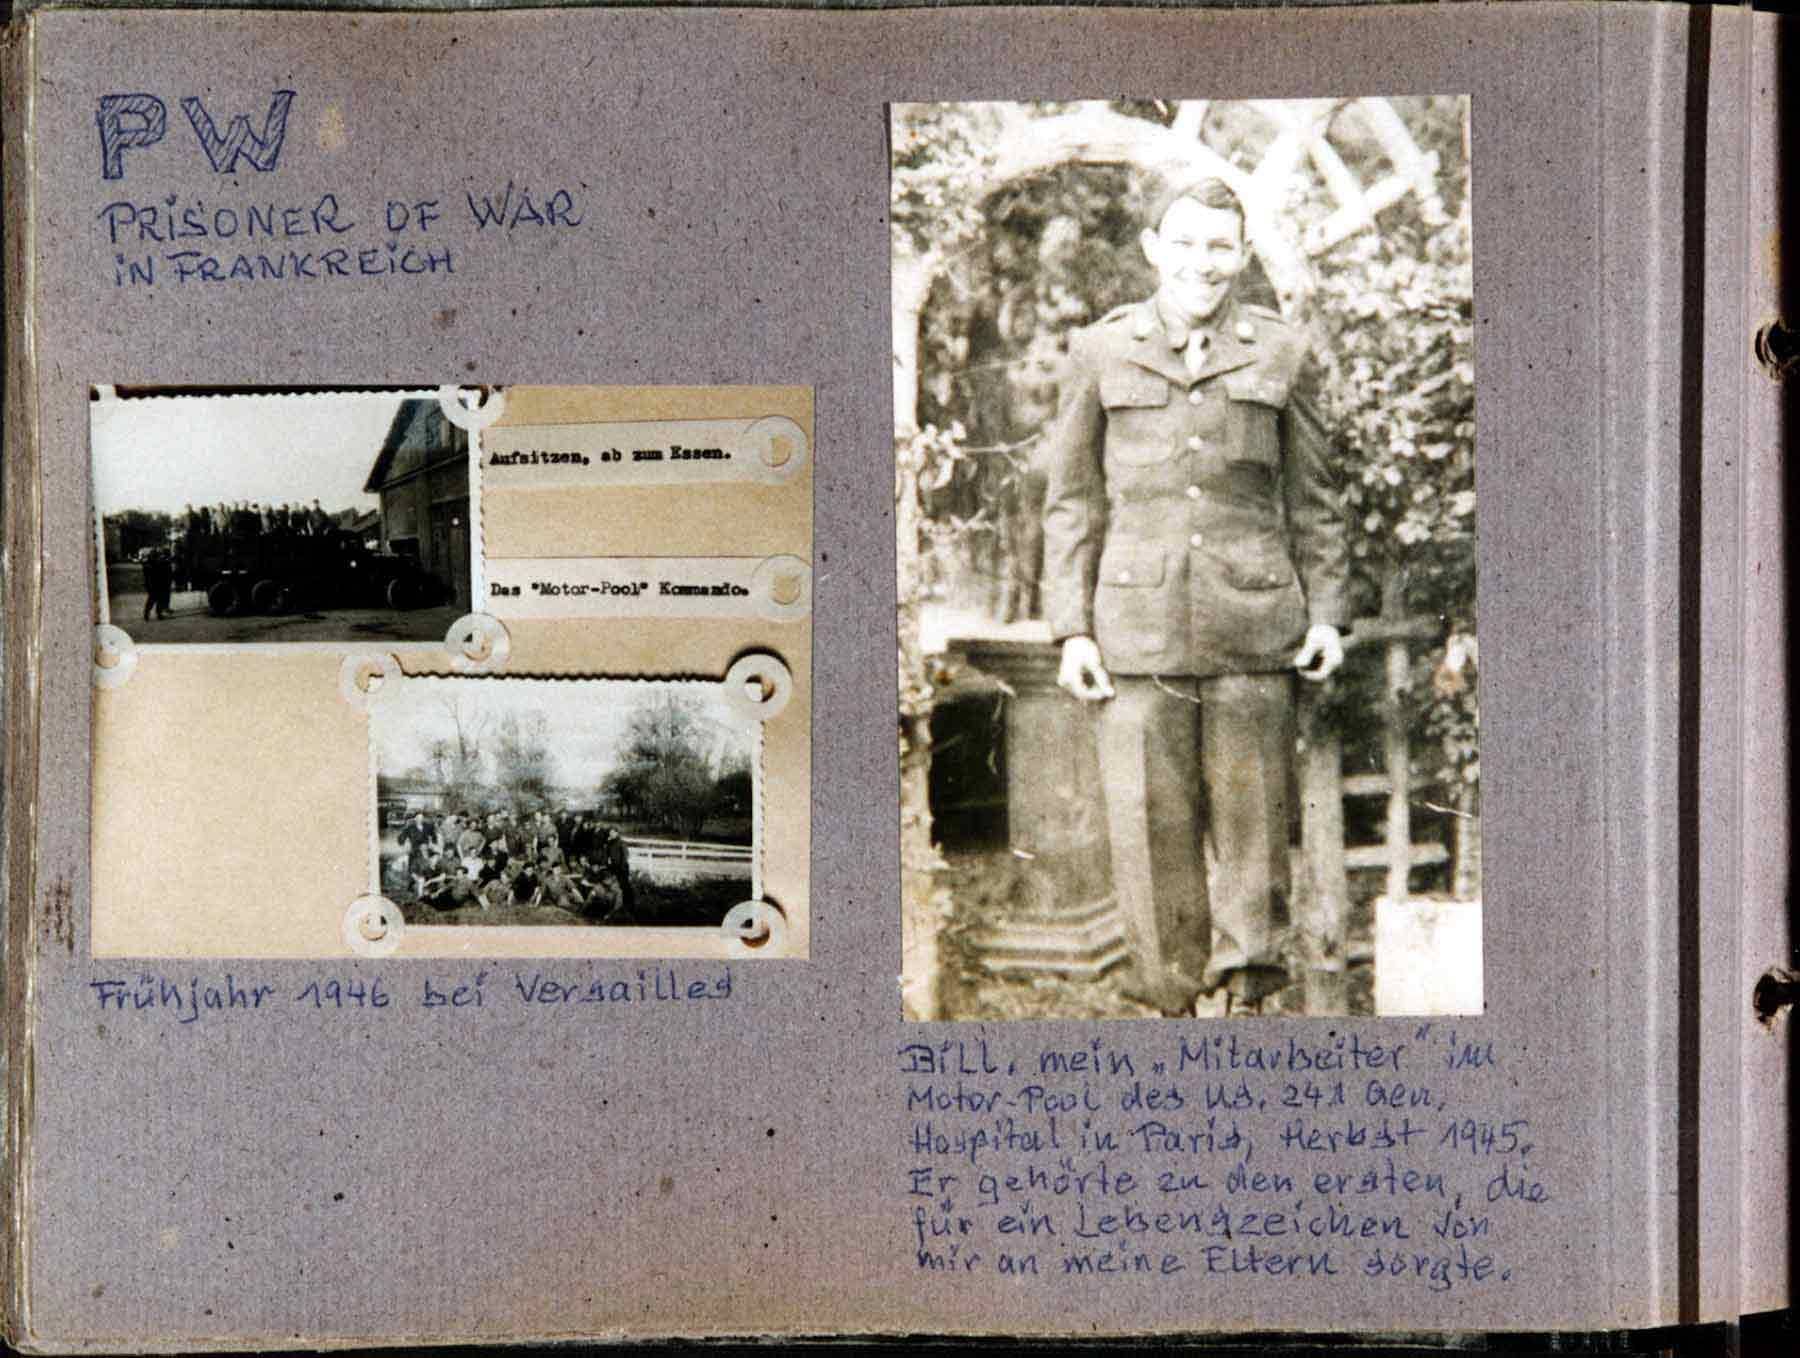 PW
PRISONER OF WAR
IN FRANKREICH
Aufsitzen, ab zum Essen.
Das "Motor-Pool" Kommando.
Frühjahr 1946 bei Versailles
Bill, mein „Mitarbeiter“ im
Motor-Pool des US. 241 Gen.
Hospital in Paris, Herbst 1945.
Er gehörte zu den ersten, die
für ein Lebenszeichen von
mir an meine Eltern sorgte.